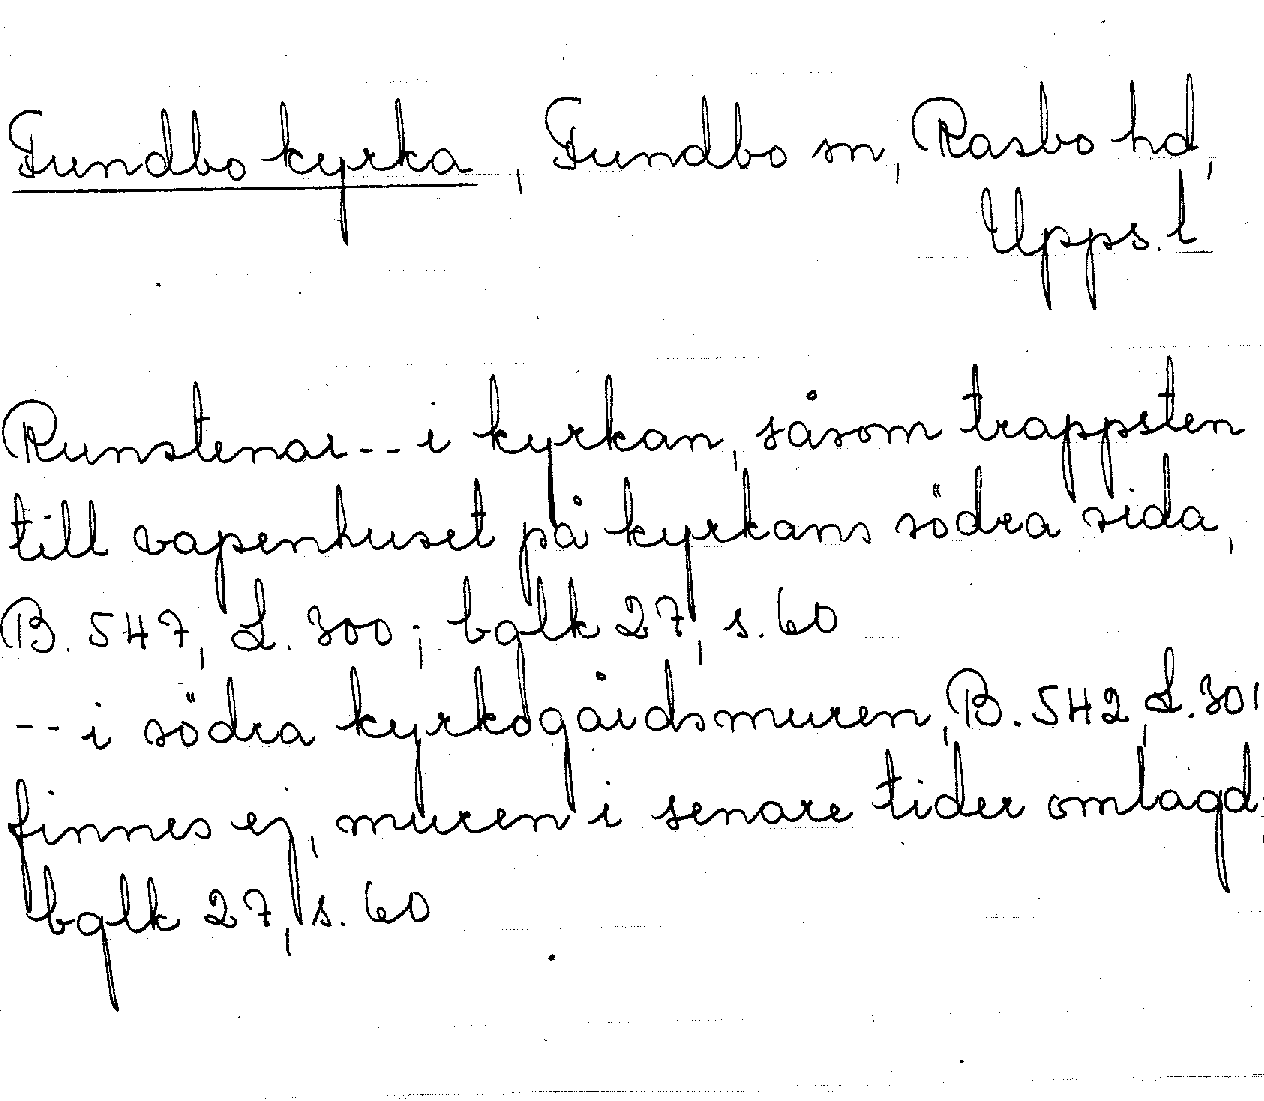 Funbo kyrka, Funbo sn, Rasbo hd,
Upps. l
Runstenar -- i kyrkan, såsom trappsten
till vapenhuset på kyrkans södra sida,
B. 547, L. 300; bglk 27, s. 60
-- i södra kyrkogårdsmuren, B. 542, L. 301
finnes ej, muren i senare tider omlagd;
bglk 27, s. 60